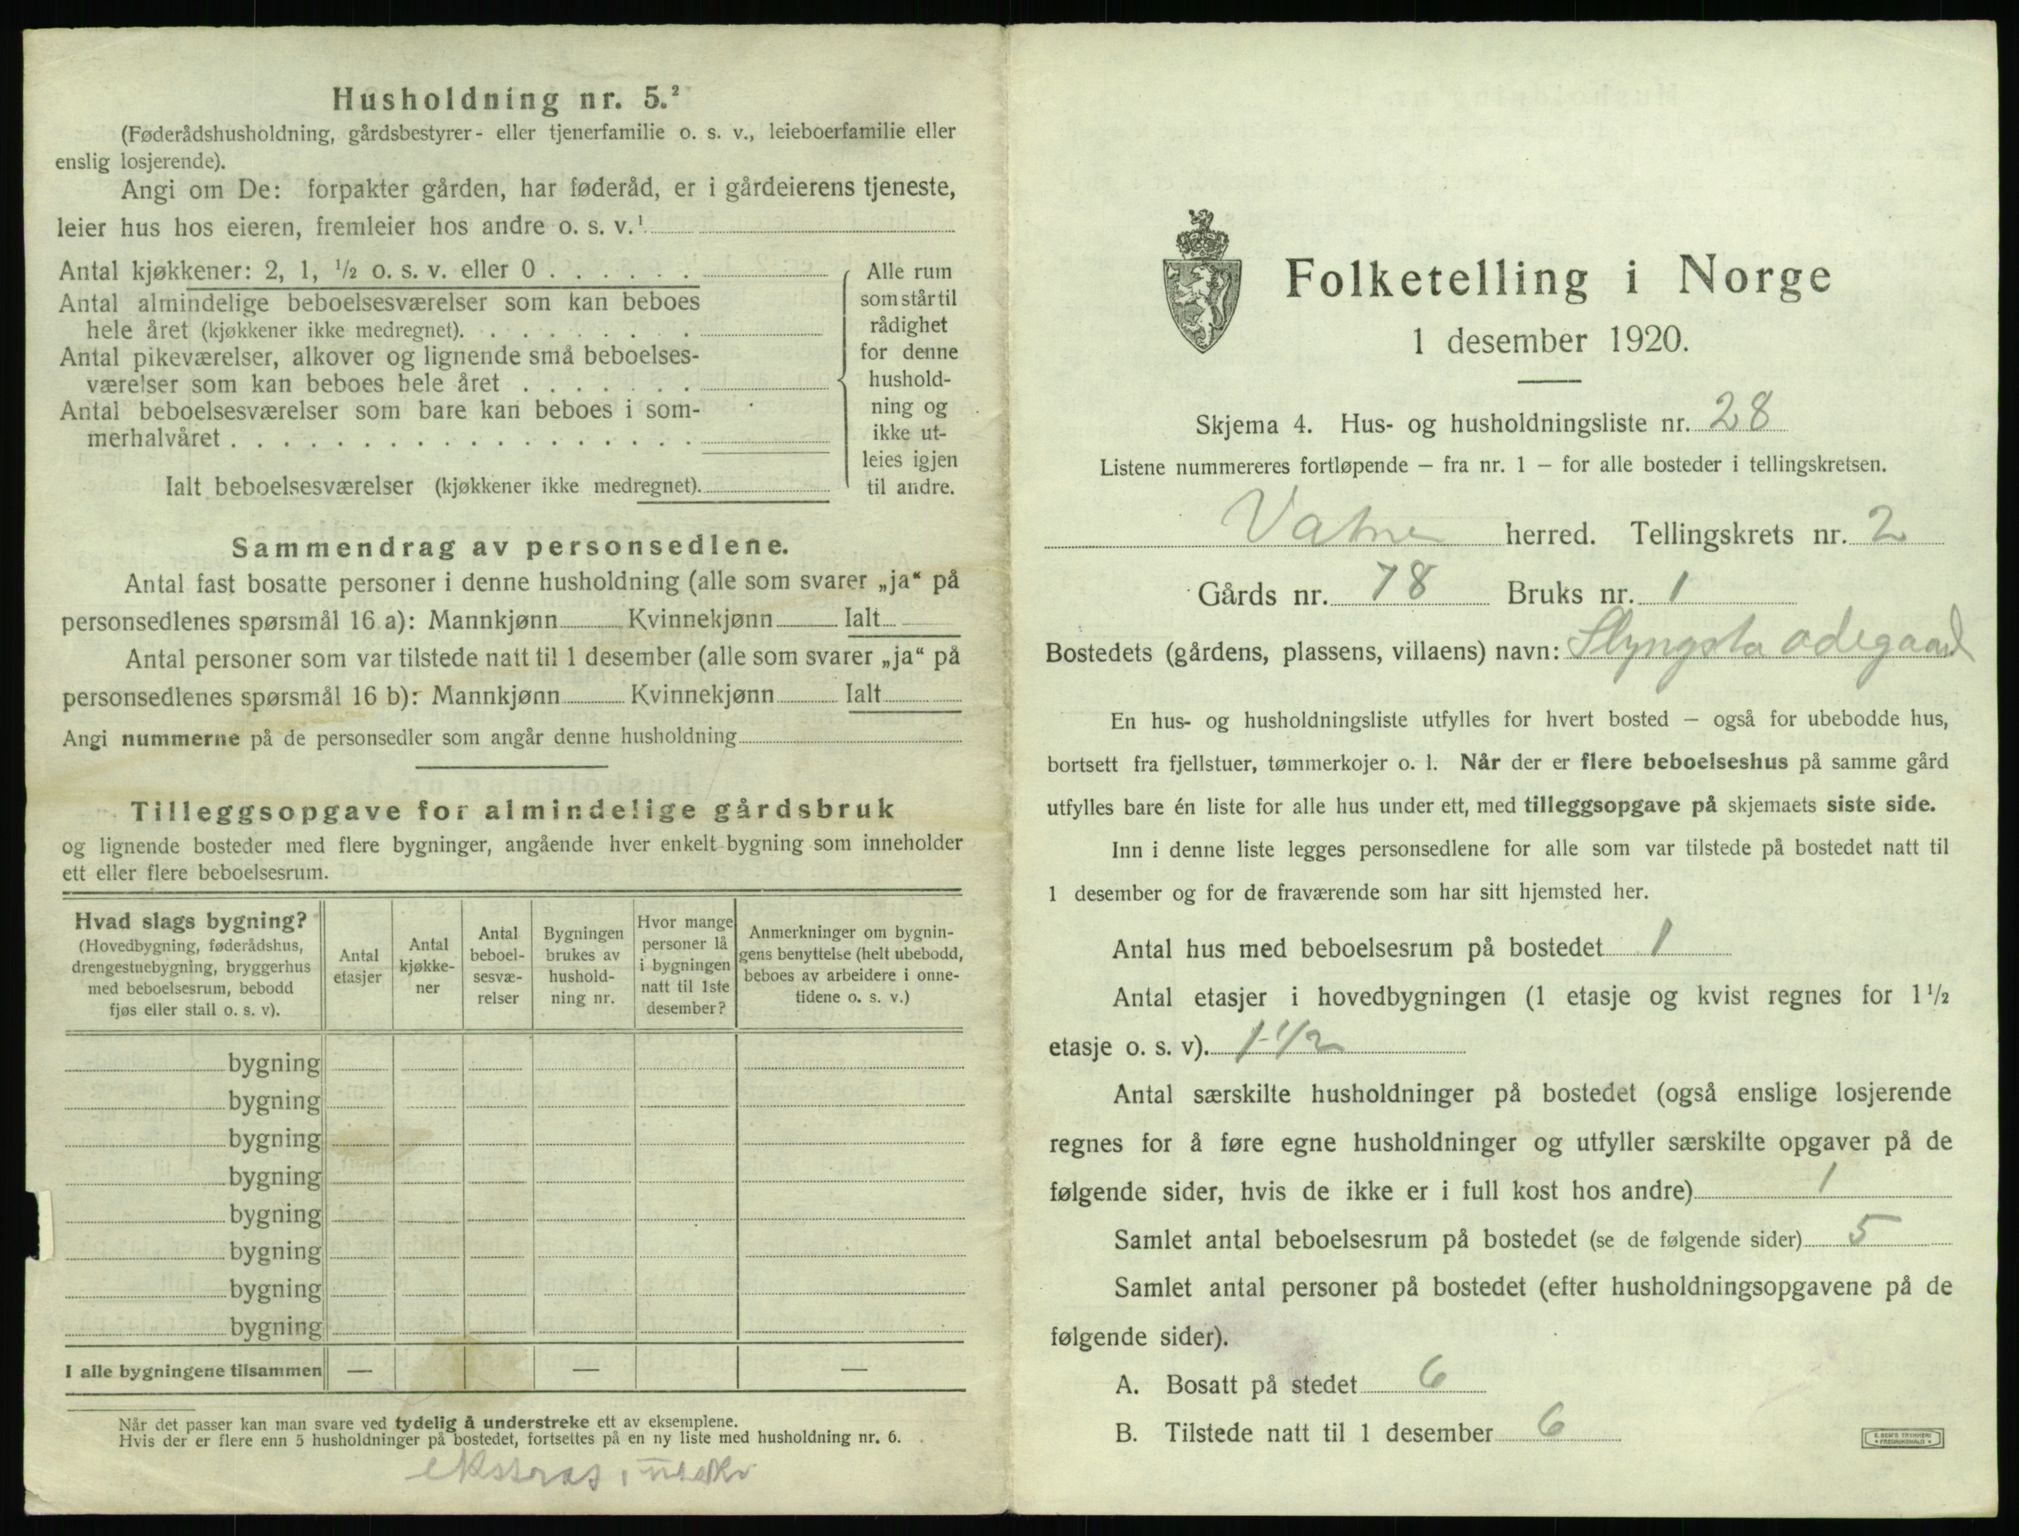 Husholdning nr. 5.²
(Føderådshusholdning, gårdsbestyrer- eller tjenerfamilie o. s. v., leieboerfamilie eller
enslig losjerende).
Angi om De: forpakter gården, har føderåd, er i gårdeierens tjeneste,
leier hus hos eieren, fremleier hos andre o. s. v.¹
Antal kjøkkener: 2, 1, ½ o. s. v. eller 0 . . . . . .
Antal almindelige beboelsesværelser som kan beboes
hele året (kjøkkener ikke medregnet). . . . . . . .
Antal pikeværelser, alkover og lignende små beboelses-
værelser som kan beboes hele året . . . . . . .
Antal beboelsesværelser som bare kan beboes i som-
merhalvåret . . . . . . . . . . . . . . . . . .
Ialt beboelsesværelser (kjøkkener ikke medregnet).
Alle rum
som står til
rådighet
for denne
hushold-
ning og
ikke ut-
leies igjen
til andre.
Sammendrag av personsedlene.
Antal fast bosatte personer i denne husholdning (alle som svarer „ja“ på
personsedlenes spørsmål 16 a): Mannkjønn Kvinnekjønn Ialt
Antal personer som var tilstede natt til 1 desember (alle som svarer „ja“ på
personsedlenes spørsmål 16 b): Mannkjønn Kvinnekjønn Ialt
Angi nummerne på de personsedler som angår denne husholdning
Tilleggsopgave for almindelige gårdsbruk
og lignende bosteder med flere bygninger, angående hver enkelt bygning som inneholder
ett eller flere beboelsesrum.
Hvad slags bygning?
(Hovedbygning, føderådshus,
drengestuebygning, bryggerhus
med beboelsesrum, bebodd
fjøs eller stall o. s. v).
Antal
etasjer
Antal
kjøkke-
ner
Antal
beboel-
sesvæ-
relser
Bygningen
brukes av
hushold-
ning nr.
Hvor mange
personer lå
i bygningen
natt til 1ste
desember?
Anmerkninger om bygnin-
gens benyttelse (helt ubebodd,
beboes av arbeidere i onne-
tidene o. s. v.)
bygning
bygning
bygning
bygning
bygning
bygning
bygning
bygning
I alle bygningene tilsammen — — —
Når det passer kan man svare ved tydelig å understreke ett av eksemplene.
Hvis der er flere enn 5 husholdninger på bostedet, fortsettes på en ny liste med husholdning nr. 6.
Folketelling i Norge
1 desember 1920.
Skjema 4. Hus- og husholdningsliste nr. 28
Listene nummereres fortløpende — fra nr. 1 — for alle bosteder i tellingskretsen.
Vatne herred. Tellingskrets nr. 2
Gårds nr. 78 Bruks nr. 1
Bostedets (gårdens, plassens, villaens) navn: Slyngsta ødegaard
En hus- og husholdningsliste utfylles for hvert bosted — også for ubebodde hus,
bortsett fra fjellstuer, tømmerkojer o. l. Når der er flere beboelseshus på samme gård
utfylles bare én liste for alle hus under ett, med tilleggsopgave på skjemaets siste side.
Inn i denne liste legges personsedlene for alle som var tilstede på bostedet natt til
1 desember og for de fraværende som har sitt hjemsted her.
Antal hus med beboelsesrum på bostedet 1
Antal etasjer i hovedbygningen (1 etasje og kvist regnes for 1½
etasje o. s. v). 1 1/2
Antal særskilte husholdninger på bostedet (også enslige losjerende
regnes for å føre egne husholdninger og utfyller særskilte opgaver på de
følgende sider, hvis de ikke er i full kost hos andre) 1
Samlet antal beboelsesrum på bostedet (se de følgende sider) 5
Samlet antal personer på bostedet (efter husholdningsopgavene på de
følgende sider).
A. Bosatt på stedet 6
B. Tilstede natt til 1 desember 6